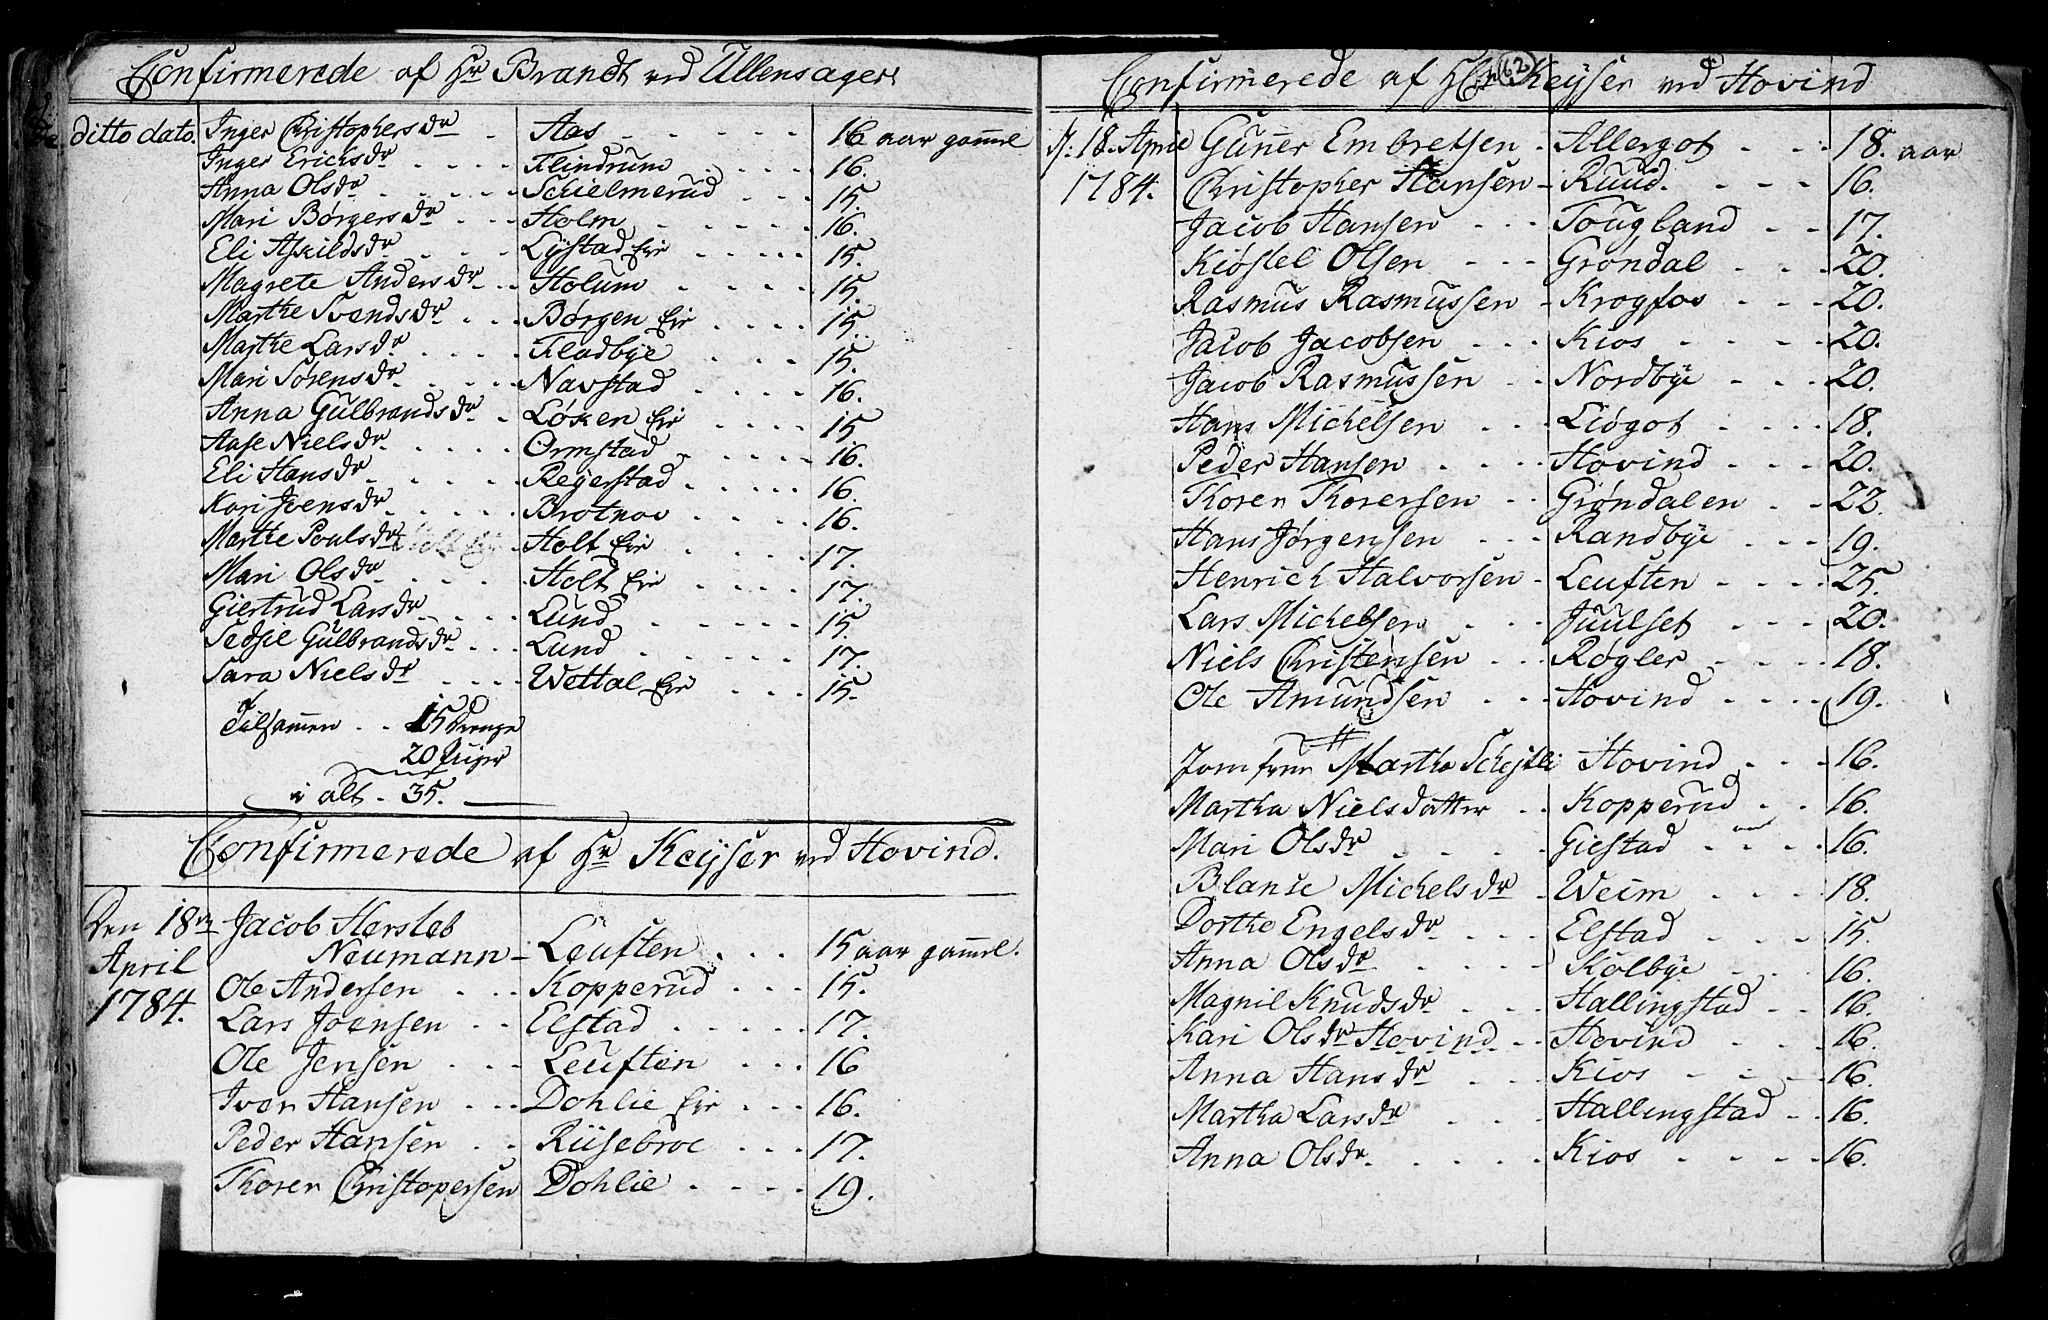 Confirmerede af Hr Brandt ved Ullensager.
ditto dato. Inger Christophersdr - Aas - 16 aar gamel
Inger Ericksdr Flindrum 16.
Anna Olsdr Schielmerud 15.
Mari Børgersdr Holm 16.
Eli Askildsdr Lystad Eie 15.
Magrete Andersdr Holum 15.
Marthe Svendsdr Børgen Eie 15.
Marthe Larsdr Fladbye 15.
Mari Sørensdr Navstad 16.
Anna Gulbrandsdr Løken Eie 15
Aase Nielsdr Ormstad 16.
Eli Hansdr Reyerstad 16.
Kari Joensdr Brotnoe 16.
Marthe Poulsdr Holt Eie 17.
Mari Olsdr Holt Eie 17.
Giertrud Larsdr Lund 15.
Sedsel Gulbrandsdr Lund 17.
Sara Nielsdr Wettal Eie 15.
Tilsamen 15 Drenge
20 Piiger
i alt - 35.
Confirmerede af Hr Keyser ved Hovind.
Den 18de Jacob Hersleb
Neumann - Leuften 15 aar gamel.
April
Ole Andersen Kopperud 15.
1784. Lars Joensen Elstad 17.
Ole Jensen Leuften 16
Iver Hansen Dohlie Eie 16.
Peder Hansen Riisebroe 17.
Thorer Christopersen Dohlie 19.
Confirmerede af Hr Keyser ved Hovind
62
D: 18. April Guner Embretsen - Allergot 18. aar
1784. Christopher Hansen - Ruud 16.
Jacob Hansen Tougland 17.
Kiøstel Olsen Grøndal 20.
Rasmus Rasmussen - Krogfos 20.
Jacob Jacobsen Kios 20.
Jacob Rasmussen Nordbye 20.
Hans Michelsen Liøgot 18.
Peder Hansen Hovind 20.
Thorer Thorersen Grøndalen 22.
Hans Jørgensen Randbye 19.
Henrich Halvorsen - Leuften 25.
Lars Michelsen Juulset 20.
Niels Christensen Røgler 18.
Ole Amundsen Hovind 19.
Jomfrue Martha Hovind 16.
Martha Nielsdatter Kopperud 16.
Mari Olsdr Giestad 16.
Blanse Michelsdr Weim 18.
Dorthe Engelsdr Elstad 15.
Anna Olsdr Kolbye 16.
Magnil Knudsdr Hallingstad 16.
Kari Olsdr Hovind Hovind 16.
Anna Hansdr Kios 16.
Martha Larsdr Hallingstad 16.
Anna Olsdr Kios 16.